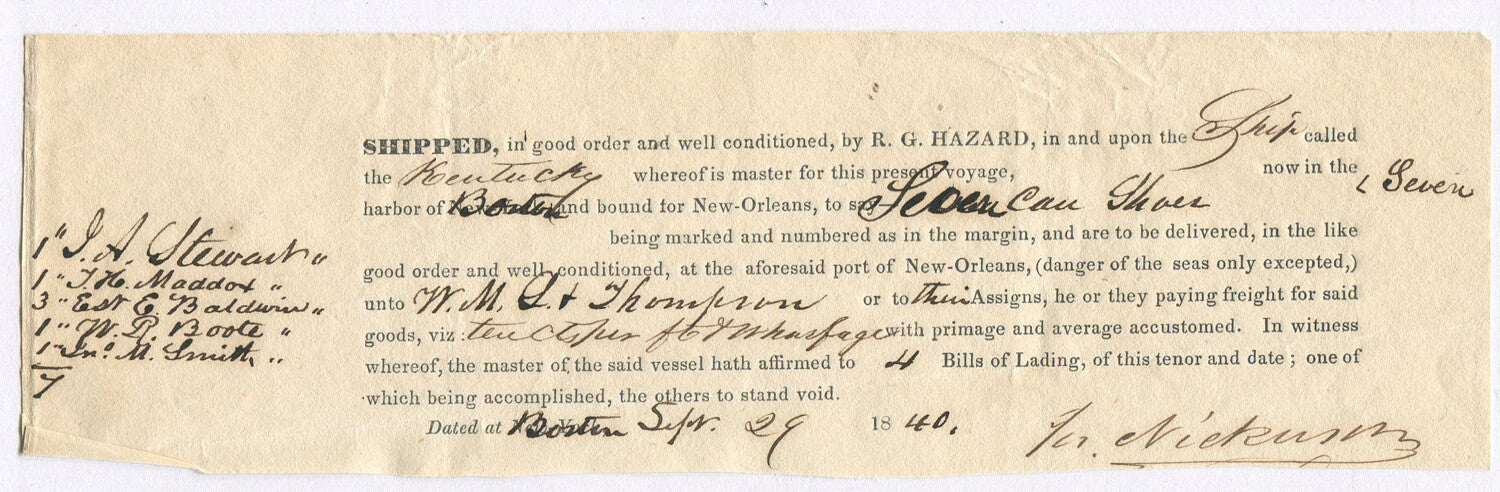 SHIPPED, in good order and well conditioned, by R. G. HAZARD, in and upon the Ship called
the Kentucky whereof is master for this present voyage, now in the
harbor of Boston and bound for New-Orleans, to say Seven Cases Shoes (Seven
being marked and numbered as in the margin, and are to be delivered, in the like
good order and well conditioned, at the aforesaid port of New-Orleans, (danger of the seas only excepted,)
unto W. M. L. & Thompson or to their Assigns, he or they paying freight for said
goods, viz : ten cts per ft & Wharfage with primage and average accustomed. In witness
whereof, the master of the said vessel hath affirmed to 4 Bills of Lading, of this tenor and date ; one of
which being accomplished, the others to stand void.
Dated at Boston Sept. 29 1840.
Nickerson
1 " J. A. Stewart "
1 " T. H. Maddox "
3 " Est E Baldwin "
1 " W. P. Boote "
1 " Jno. M. Smith "
7